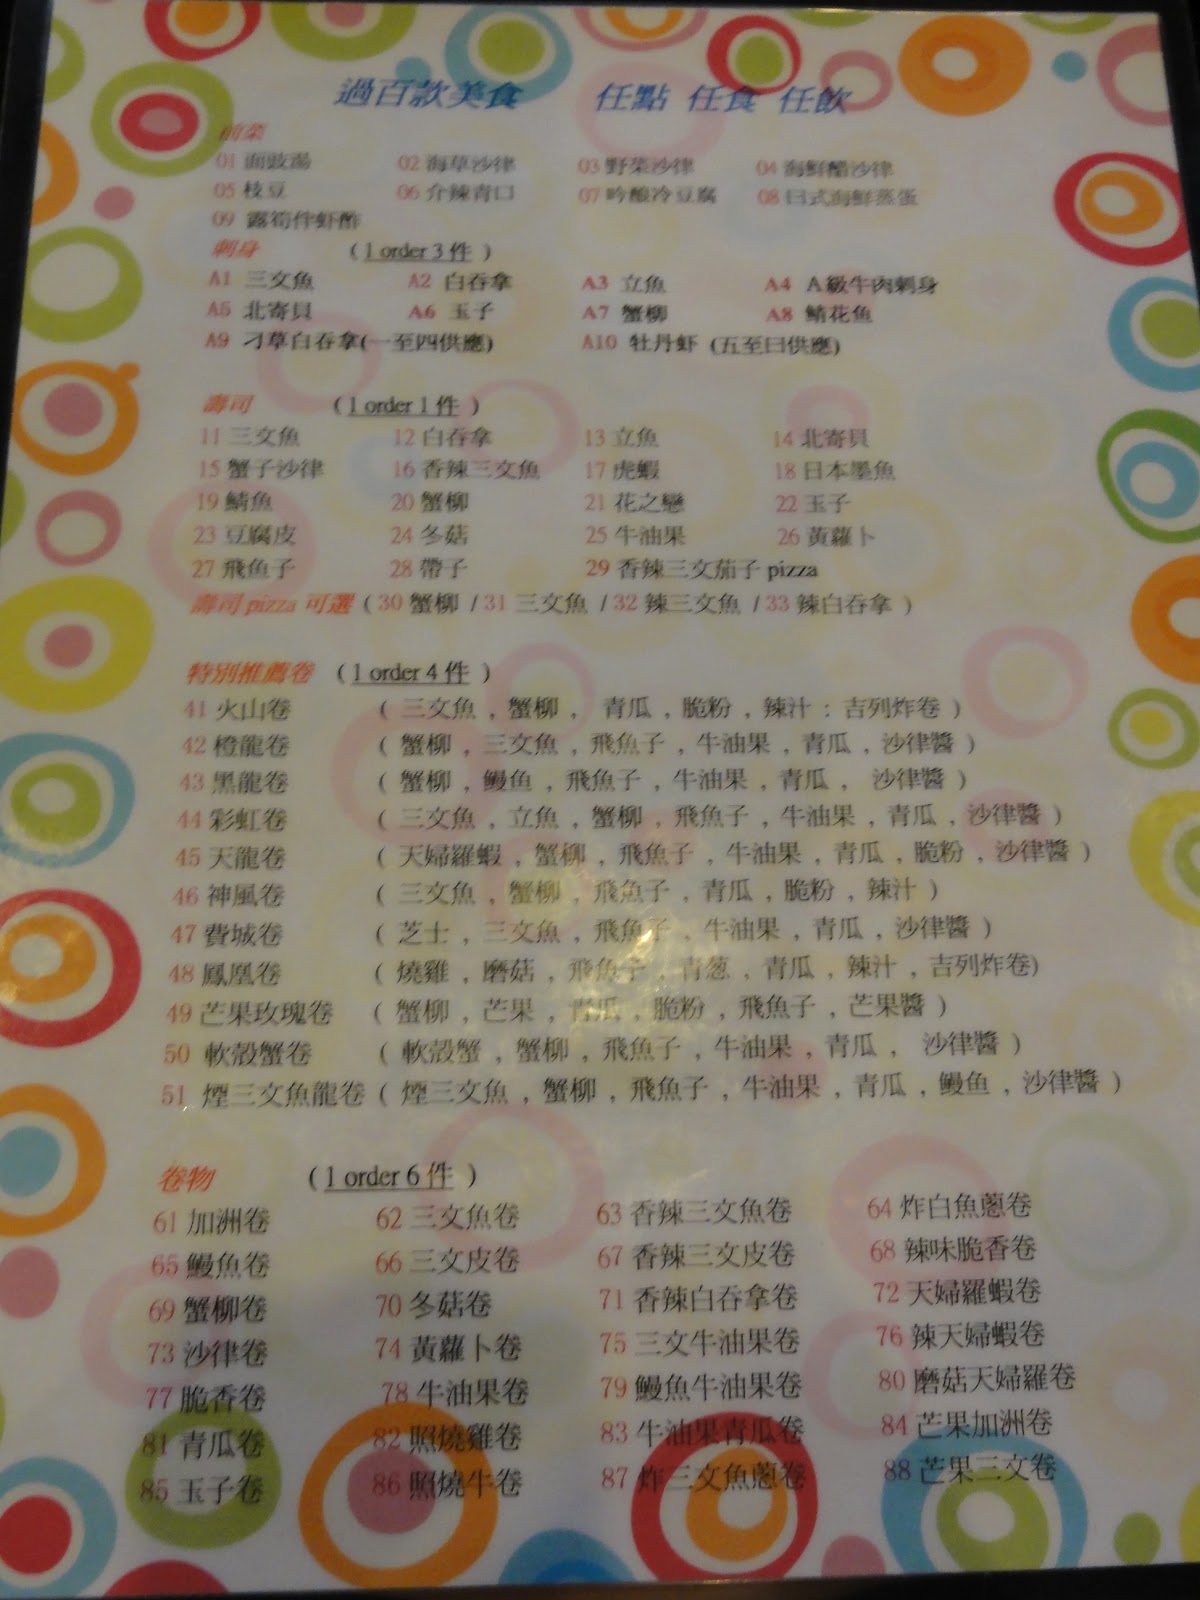 過百款美食 任點 任食 任飲
前菜
01 面豉湯 02 海草沙律 03 野菜沙律 04 海鮮醋沙律
05 枝豆 06 介辣青口 07 吟釀冷豆腐 08 日式海鮮蒸蛋
09 露筍伴虾酢
刺身 ( 1 order 3 件 )
A1 三文魚 A2 白吞拿 A3 立魚 A4 A級牛肉刺身
A5 北寄貝 A6 玉子 A7 蟹柳 A8 鯖花魚
A9 刁草白吞拿(一至四供應) A10 牡丹虾 (五至日供應)
壽司 ( 1 order 1 件 )
11 三文魚 12 白吞拿 13 立魚 14 北寄貝
15 蟹子沙律 16 香辣三文魚 17 虎蝦 18 日本墨魚
19 鯖魚 20 蟹柳 21 花之戀 22 玉子
23 豆腐皮 24 冬菇 25 牛油果 26 黃蘿卜
27 飛魚子 28 帶子 29 香辣三文茄子 pizza
壽司 pizza 可選 ( 30 蟹柳 / 31 三文魚 / 32 辣三文魚 / 33 辣白吞拿 )
特別推薦卷 ( 1 order 4 件 )
41 火山卷 ( 三文魚 , 蟹柳 , 青瓜 , 脆粉 , 辣汁 : 吉列炸卷 )
42 橙龍卷 ( 蟹柳 , 三文魚 , 飛魚子 , 牛油果 , 青瓜 , 沙律醬 )
43 黑龍卷 ( 蟹柳 , 鰻鱼 , 飛魚子 , 牛油果 , 青瓜 , 沙律醬 )
44 彩虹卷 ( 三文魚 , 立魚 , 蟹柳 , 飛魚子 , 牛油果 , 青瓜 , 沙律醬 )
45 天龍卷 ( 天婦羅蝦 , 蟹柳 , 飛魚子 , 牛油果 , 青瓜 , 脆粉 , 沙律醬 )
46 神風卷 ( 三文魚 , 蟹柳 , 飛魚子 , 青瓜 , 脆粉 , 辣汁 )
47 費城卷 ( 芝士 , 三文魚 , 飛魚子 , 牛油果 , 青瓜 , 沙律醬 )
48 鳳凰卷 ( 燒雞 , 磨菇 , 飛魚子 , 青葱 , 青瓜 , 辣汁 , 吉列炸卷)
49 芒果玫瑰卷 ( 蟹柳 , 芒果 , 青瓜 , 脆粉 , 飛魚子 , 芒果醬 )
50 軟殼蟹卷 ( 軟殼蟹 , 蟹柳 , 飛魚子 , 牛油果 , 青瓜 , 沙律醬 )
51 煙三文魚龍卷 ( 煙三文魚 , 蟹柳 , 飛魚子 , 牛油果 , 青瓜 , 鰻鱼 , 沙律醬 )
卷物 ( 1 order 6 件 )
61 加洲卷 62 三文魚卷 63 香辣三文魚卷 64 炸白魚蔥卷
65 鰻魚卷 66 三文皮卷 67 香辣三文皮卷 68 辣味脆香卷
69 蟹柳卷 70 冬菇卷 71 香辣白吞拿卷 72 天婦羅蝦卷
73 沙律卷 74 黃蘿卜卷 75 三文牛油果卷 76 辣天婦蝦卷
77 脆香卷 78 牛油果卷 79 鰻魚牛油果卷 80 磨菇天婦羅卷
81 青瓜卷 82 照燒雞卷 83 牛油果青瓜卷 84 芒果加洲卷
85 玉子卷 86 照燒牛卷 87 炸三文魚蔥卷 88 芒果三文卷